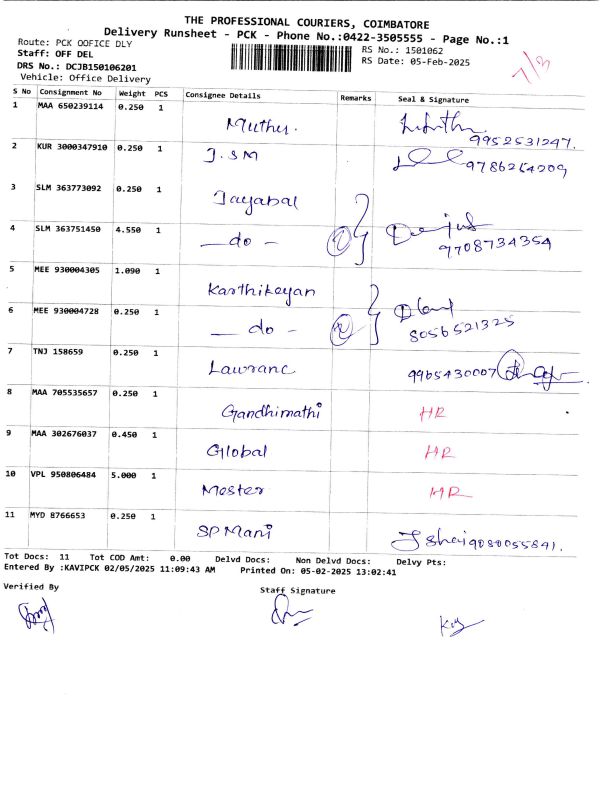 THE PROFESSIONAL COURIERS, COIMBATORE
Delivery Runsheet - PCK - Phone No.:0422-3505555 - Page No.:1
Route: PCK OOFICE DLY
RS No.: 1501062
Staff: OFF DEL
RS Date: 05-Feb-2025
DRS No.: DCJB150106201
Vehicle: Office Delivery
7/3
S No Consignment No Weight PCS Consignee Details Remarks Seal & Signature
1 MAA 650239114 0.250 1 Muthu. 9952531247.
2 KUR 3000347910 0.250 1 J.SM 9786254209
3 SLM 363773092 0.250 1 Jayabal
4 SLM 363751450 4.550 1 — do - 2 9708734354
5 MEE 930004305 1.090 1 Karthikeyan
6 MEE 930004728 0.250 1 — do - 2 8056521325
7 TNJ 158659 0.250 1 Lawranc 9965430007
8 MAA 705535657 0.250 1 Gandhimathi HR
9 MAA 302676037 0.450 1 Global HR
10 VPL 950806484 5.000 1 Mester HR
11 MYD 8766653 0.250 1 SP Mani 9080055841.
Tot Docs: 11 Tot COD Amt: 0.00 Delvd Docs: Non Delvd Docs: Delvy Pts:
Entered By :KAVIPCK 02/05/2025 11:09:43 AM Printed On: 05-02-2025 13:02:41
Verified By Staff Signature